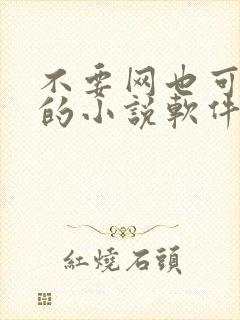 不要网也可
的小説軟件
紅燒石頭